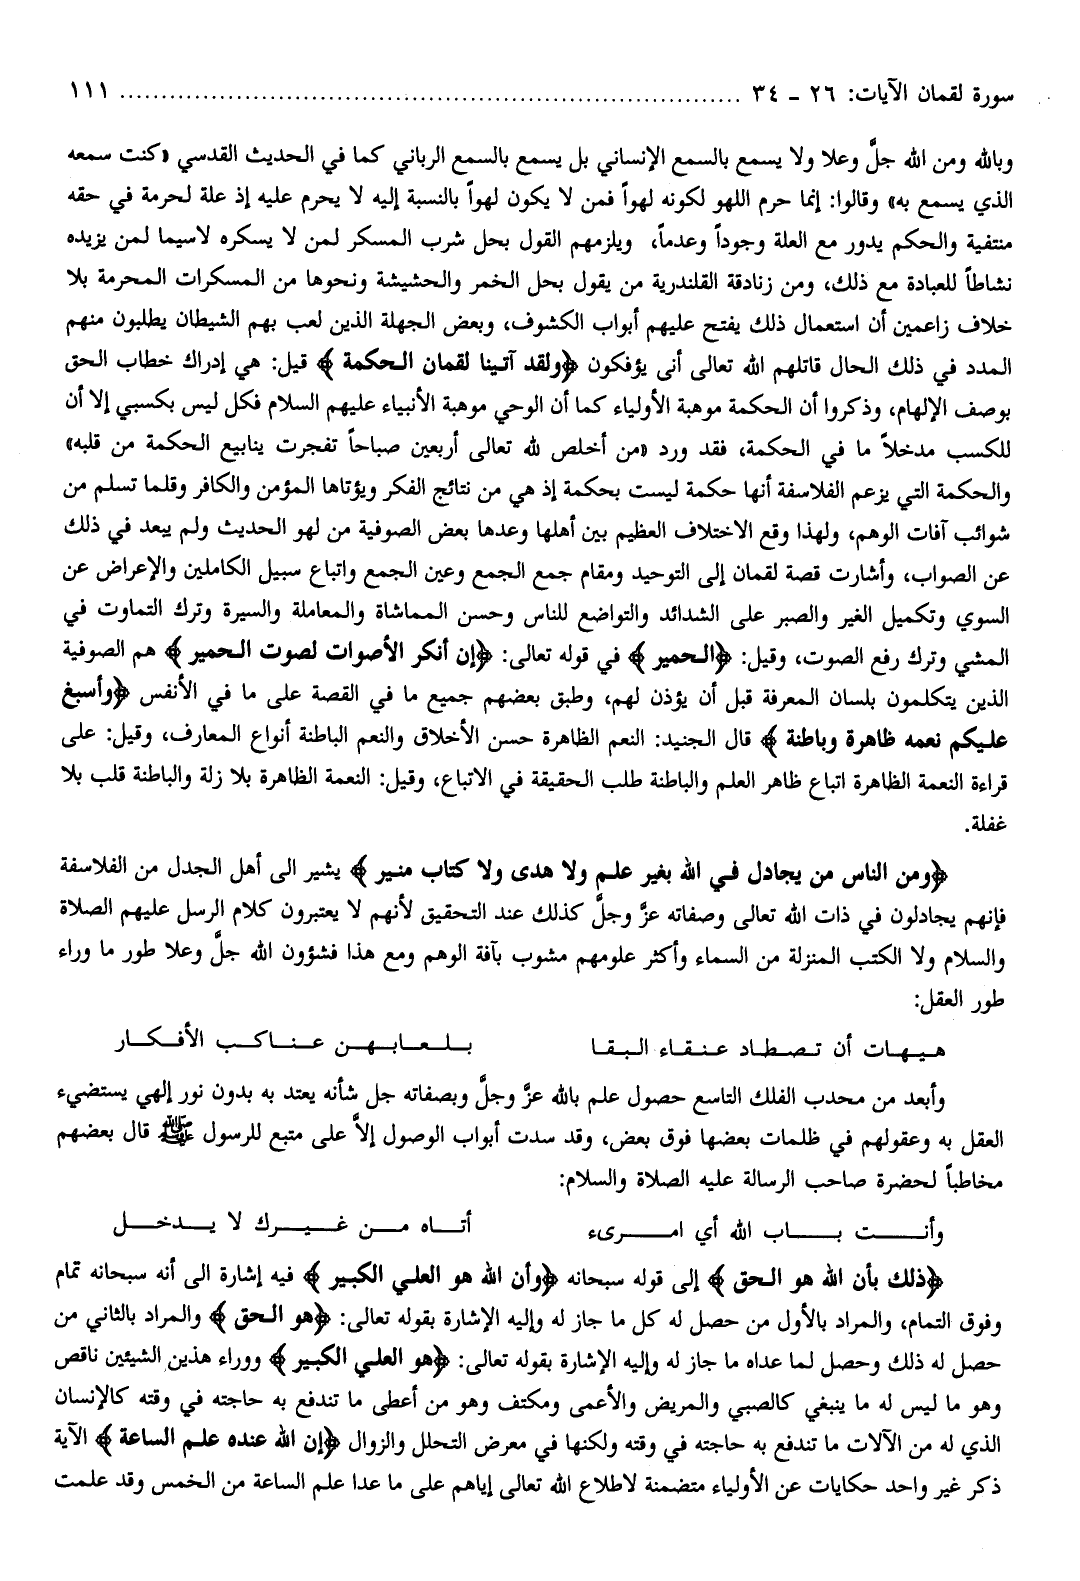 سورة لقمان الآيات: ٢٦ - ٣٤ ............................................................ ١١١
وبالله ومن الله جلَّ وعلا ولا يسمع بالسمع الإنساني بل يسمع بالسمع الرباني كما في الحديث القدسي «كنت سمعه
الذي يسمع به» وقالوا: إنما حرم اللهو لكونه لهواً فمن لا يكون لهواً بالنسبة إليه لا يحرم عليه إذ علة لحرمة في حقه
منتفية والحكم يدور مع العلة وجوداً وعدماً، ويلزمهم القول بحل شرب المسكر لمن لا يسكره لاسيما لمن يزيده
نشاطاً للعبادة مع ذلك، ومن زنادقة القلندرية من يقول بحل الخمر والحشيشة ونحوها من المسكرات المحرمة بلا
خلاف زاعمين أن استعمال ذلك يفتح عليهم أبواب الكشوف، وبعض الجهلة الذين لعب بهم الشيطان يطلبون منهم
المدد في ذلك الحال قاتلهم الله تعالى أنى يؤفكون ﴿ولقد آتينا لقمان الحكمة﴾ قيل: هي إدراك خطاب الحق
بوصف الإلهام، وذكروا أن الحكمة موهبة الأولياء كما أن الوحي موهبة الأنبياء عليهم السلام فكل ليس بكسبي إلا أن
للكسب مدخلاً ما في الحكمة، فقد ورد «من أخلص لله تعالى أربعين صباحاً تفجرت ينابيع الحكمة من قلبه»
والحكمة التي يزعم الفلاسفة أنها حكمة ليست بحكمة إذ هي من نتائج الفكر ويؤتاها المؤمن والكافر وقلما تسلم من
شوائب آفات الوهم، ولهذا وقع الاختلاف العظيم بين أهلها وعدها بعض الصوفية من لهو الحديث ولم يبعد في ذلك
عن الصواب، وأشارت قصة لقمان إلى التوحيد ومقام جمع الجمع وعين الجمع واتباع سبيل الكاملين والإعراض عن
السوي وتكميل الغير والصبر على الشدائد والتواضع للناس وحسن المماشاة والمعاملة والسيرة وترك التماوت في
المشي وترك رفع الصوت، وقيل: ﴿الحمير﴾ في قوله تعالى: ﴿إن أنكر الأصوات لصوت الحمير﴾ هم الصوفية
الذين يتكلمون بلسان المعرفة قبل أن يؤذن لهم، وطبق بعضهم جميع ما في القصة على ما في الأنفس ﴿وأسبغ
عليكم نعمه ظاهرة وباطنة﴾ قال الجنيد: النعم الظاهرة حسن الأخلاق والنعم الباطنة أنواع المعارف، وقيل: على
قراءة النعمة الظاهرة اتباع ظاهر العلم والباطنة طلب الحقيقة في الاتباع، وقيل: النعمة الظاهرة بلا زلة والباطنة قلب بلا
غفلة.
﴿ومن الناس من يجادل في الله بغير علم ولا هدى ولا كتاب منير﴾ يشير الى أهل الجدل من الفلاسفة
فإنهم يجادلون في ذات الله تعالى وصفاته عزَّ وجلَّ كذلك عند التحقيق لأنهم لا يعتبرون كلام الرسل عليهم الصلاة
والسلام ولا الكتب المنزلة من السماء وأكثر علومهم مشوب بآفة الوهم ومع هذا فشؤون الله جلَّ وعلا طور ما وراء
طور العقل:
هيهات أن تصطاد عنقاء البقا بلعابهن عناكب الأفكار
وأبعد من محدب الفلك التاسع حصول علم بالله عزَّ وجلَّ وبصفاته جل شأنه يعتد به بدون نور إلهي يستضيء
العقل به وعقولهم في ظلمات بعضها فوق بعض، وقد سدت أبواب الوصول إلاَّ على متبع للرسول ﷺ قال بعضهم
مخاطباً لحضرة صاحب الرسالة عليه الصلاة والسلام:
وأنت باب الله أي امرىء أتاه من غيرك لا يدخل
﴿ذلك بأن الله هو الحق﴾ إلى قوله سبحانه ﴿وأن الله هو العلي الكبير﴾ فيه إشارة الى أنه سبحانه تمام
وفوق التمام، والمراد بالأول من حصل له كل ما جاز له وإليه الإشارة بقوله تعالى: ﴿هو الحق﴾ والمراد بالثاني من
حصل له ذلك وحصل لما عداه ما جاز له وإليه الإشارة بقوله تعالى: ﴿هو العلي الكبير﴾ ووراء هذين الشيئين ناقص
وهو ما ليس له ما ينبغي كالصبي والمريض والأعمى ومكتف وهو من أعطى ما تندفع به حاجته في وقته كالإنسان
الذي له من الآلات ما تندفع به حاجته في وقته ولكنها في معرض التحلل والزوال ﴿إن الله عنده علم الساعة﴾ الآية
ذكر غير واحد حكايات عن الأولياء متضمنة لاطلاع الله تعالى إياهم على ما عدا علم الساعة من الخمس وقد علمت